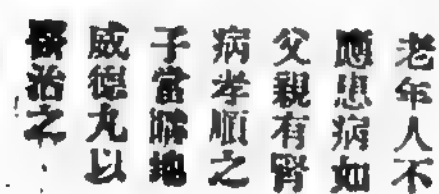 老年人不
應患病如
父親有腎
病孝順之
子當購地
威德丸以
治之